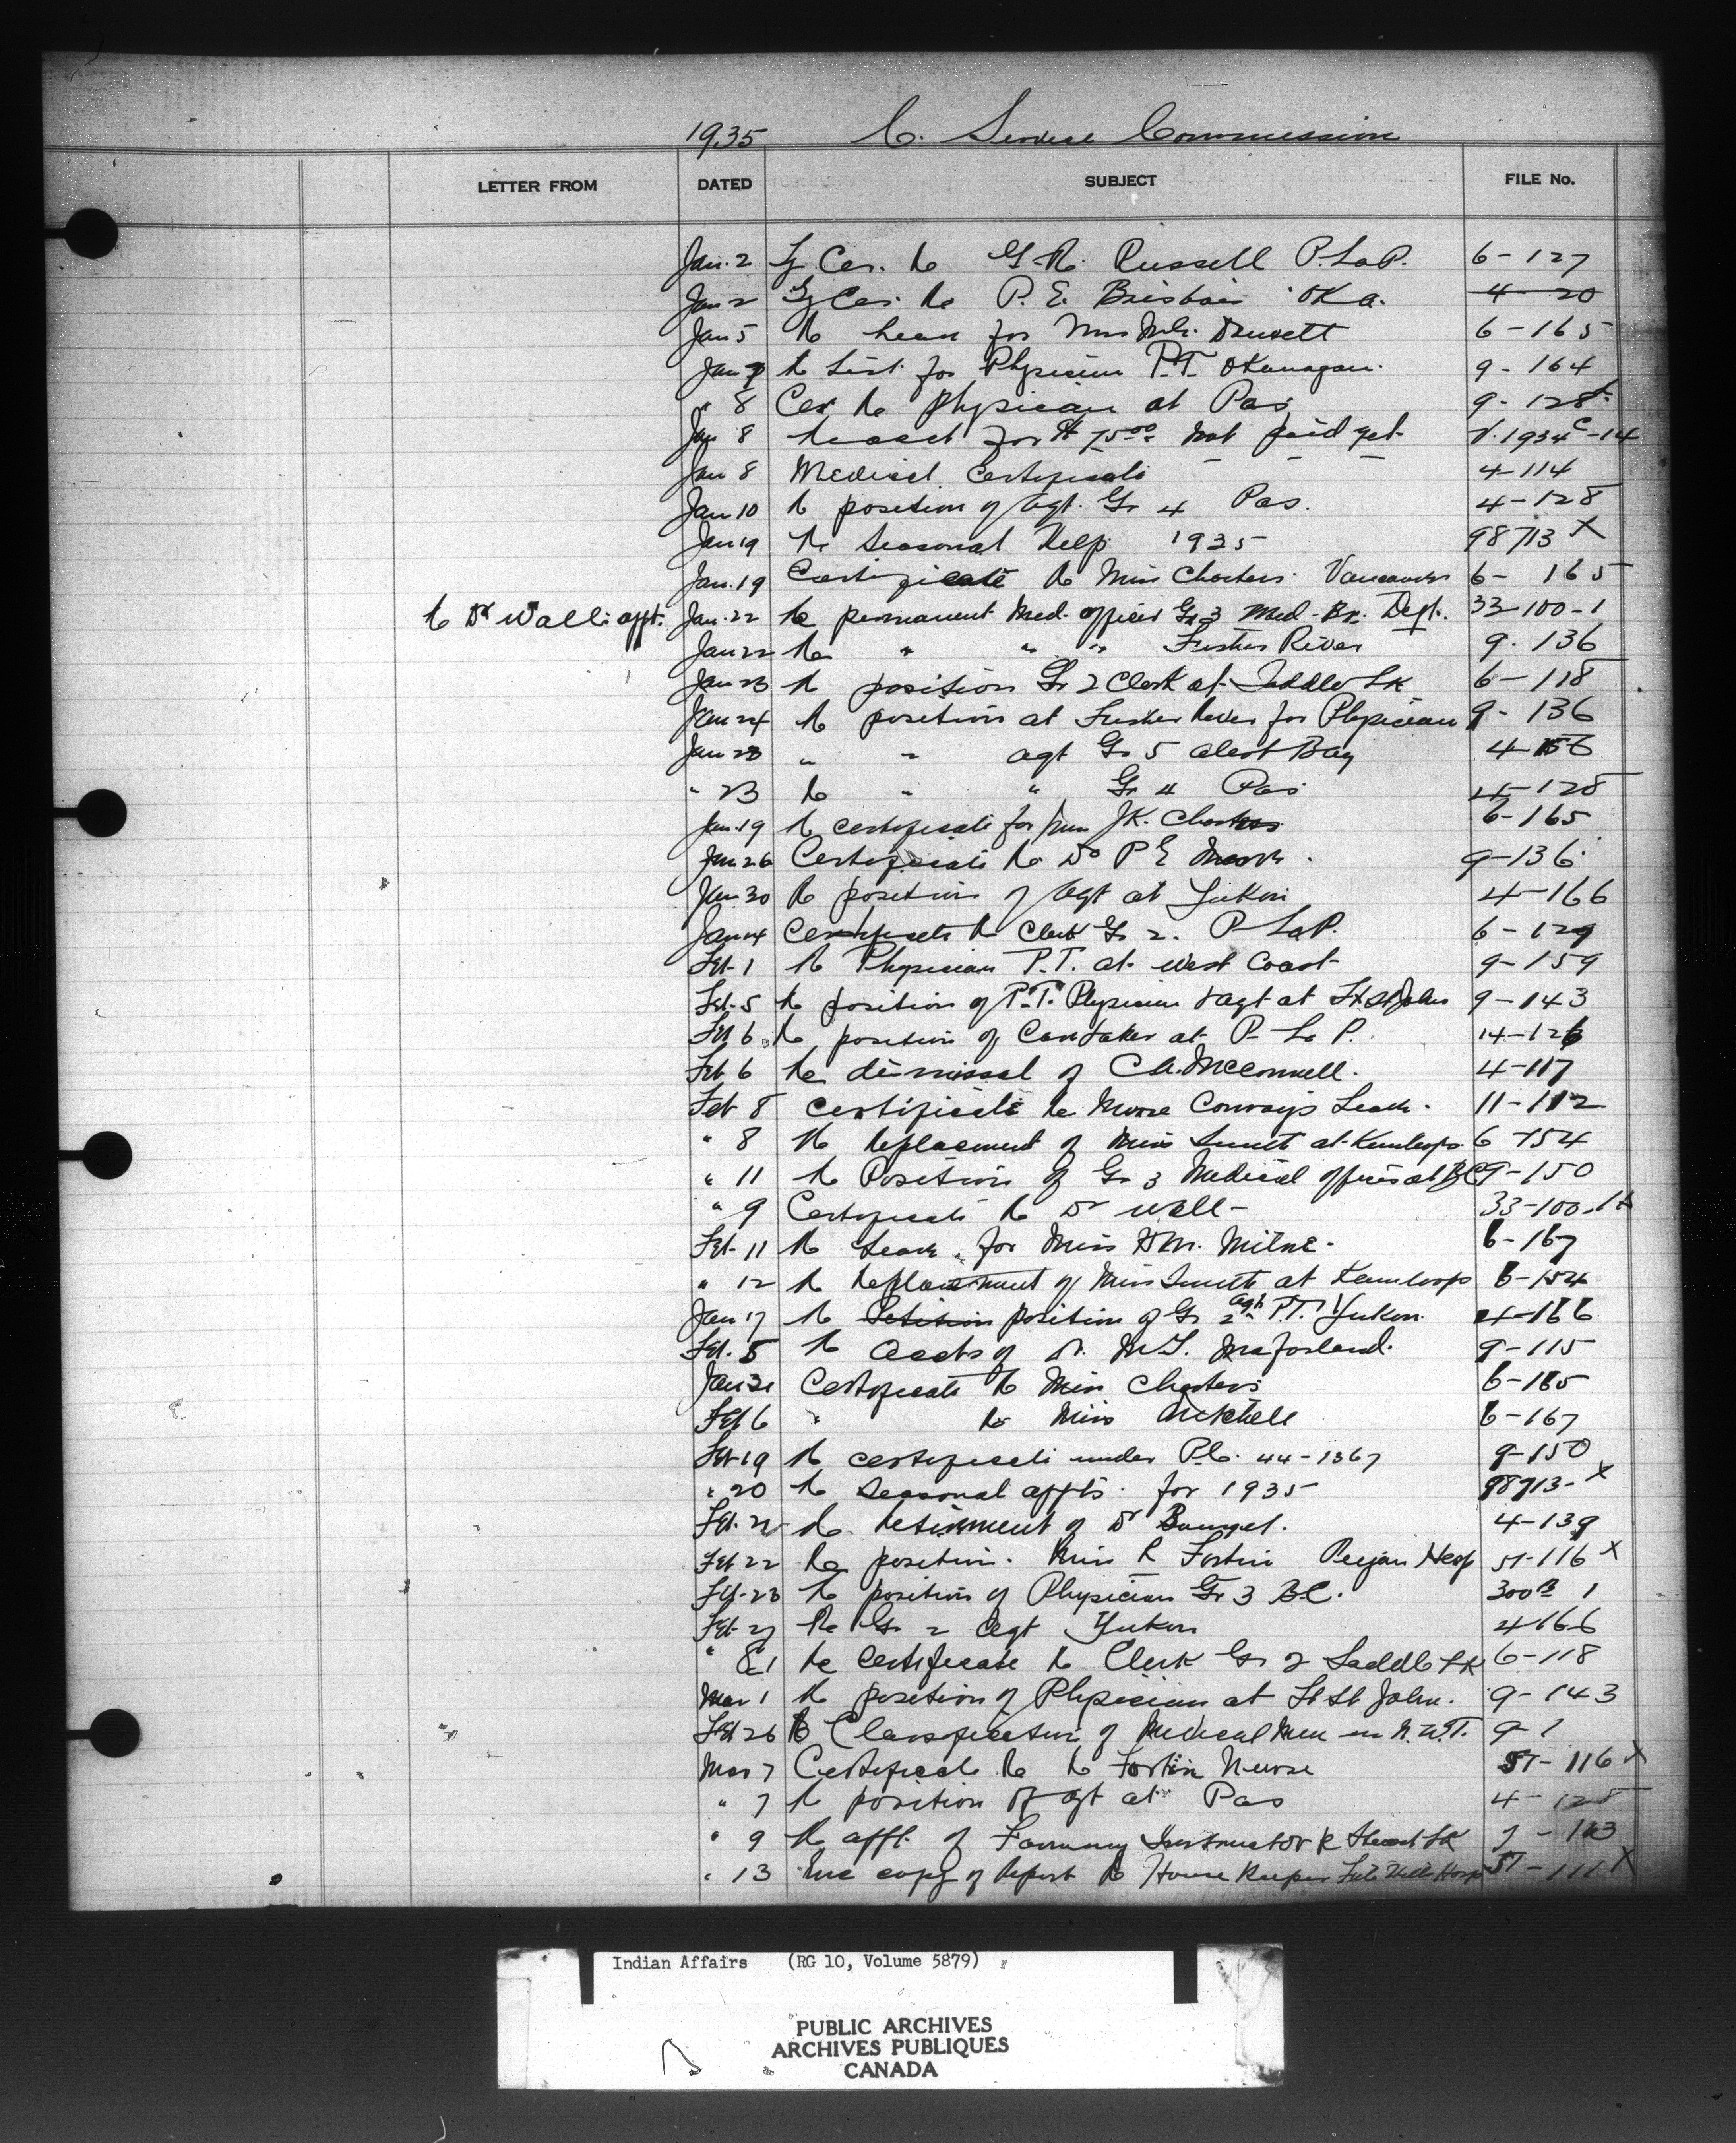 1935 C. Service Commission
LETTER FROM DATED SUBJECT FILE No.
Jan. 2 Cer. Re G.R. Russell P. La P. 6-127
Jan 2 Cer. Re P. E. Brisbois OKa. 4-20
Jan 5 Re leave for Mrs 6-165
Jan 7 Re List for Physician P.T. Okanagan. 9-164
" 8 Cer Re Physician at Pas 9-128
Jan 8 Re acct for $75.00 not paid yet 1934 C-14
Jan 8 Medical Certificate 4-114
Jan 10 Re position of Agt. Gr 4 Pas. 4-128
Jan 19 Re Seasonal Help 1935 98713 X
Jan. 19 Certificate Re Miss Charters Vancouver 6-165
Re Dr Wall's appt. Jan. 22 Re permanent Med. officer Gr 3 Med. Br. Dept. 33-100-1
Jan 22 Re " " " Fisher River 9-136
Jan 23 Re position Gr 2 Clerk at Saddle Lk 6-118
Jan 24 Re position at Fisher River for Physician 9-136
Jan 23 " " agt Gr 5 Alert Bay 4-156
" 23 Re " " Gr 4 Pas 4-128
Jan. 19 Re certificate for J.K. Charters 6-165
Jan 26 Certificate Re Dr P E 9-136
Jan. 30 Re position of Agt at Yukon 4-166
Jan 14 Certificate Re Clerk Gr 2. P La P. 6-129
Feb. 1 Re Physician P.T. at West Coast 9-159
Feb. 5 Re position of P.T. Physician & agt at Ft St John 9-143
Feb 6 Re position of Caretaker at P. La P. 14-126
Feb 6 Re dismissal of C.A. McConnell. 4-117
Feb 8 Certificate Re Conway's Leave. 11-112
" 8 Re Replacement of Miss Smith at Kamloops 6-154
" 11 Re Position of Gr 3 Medical officer at BC 9-150
" 9 Certificate Re Dr Wall 33-100-1
Feb. 11 Re Leave for Miss H.M. Milne. 6-167
" 12 Re Replacement of Miss Smith at Kamloops 6-154
Jan 17 Re Petition position of Gr 2 agt P.T. Yukon. 4-166
Feb. 5 Re Accts of Dr. 9-115
Jan 31 Certificate Re Miss Charters 6-165
Feb 6 " Re Miss Mitchell 6-167
Feb 19 Re certificate under P.C. 44-1367 9-150
" 20 Re Seasonal appts. for 1935 98713-X
Feb. 22 Re Retirement of Dr 4-139
Feb 22 Re position. Miss R Fortin Peigan Hosp 57-116 X
Feb. 23 Re position of Physician Gr 3 B.C. 300 B 1
Feb. 27 Re Gr 2 Agt Yukon 4-166
" 21 Re certificate Re Clerk Gr 2 Saddle Lk 6-118
Mar 1 Re position of Physician at Ft St John. 9-143
Feb 26 Re Classification of Medical Men in N.W.T. 9-1
Mar 7 Certificate Re R Fortin Nurse 57-116 X
" 7 Re position of agt at Pas 4-128
" 9 Re appt. of Farming Instructor R Stuart Lk 7-163
" 13 copy of Report Re House Keeper File Hills Hosp 57-111 X
Indian Affairs (RG 10, Volume 5879)
PUBLIC ARCHIVES
ARCHIVES PUBLIQUES
CANADA